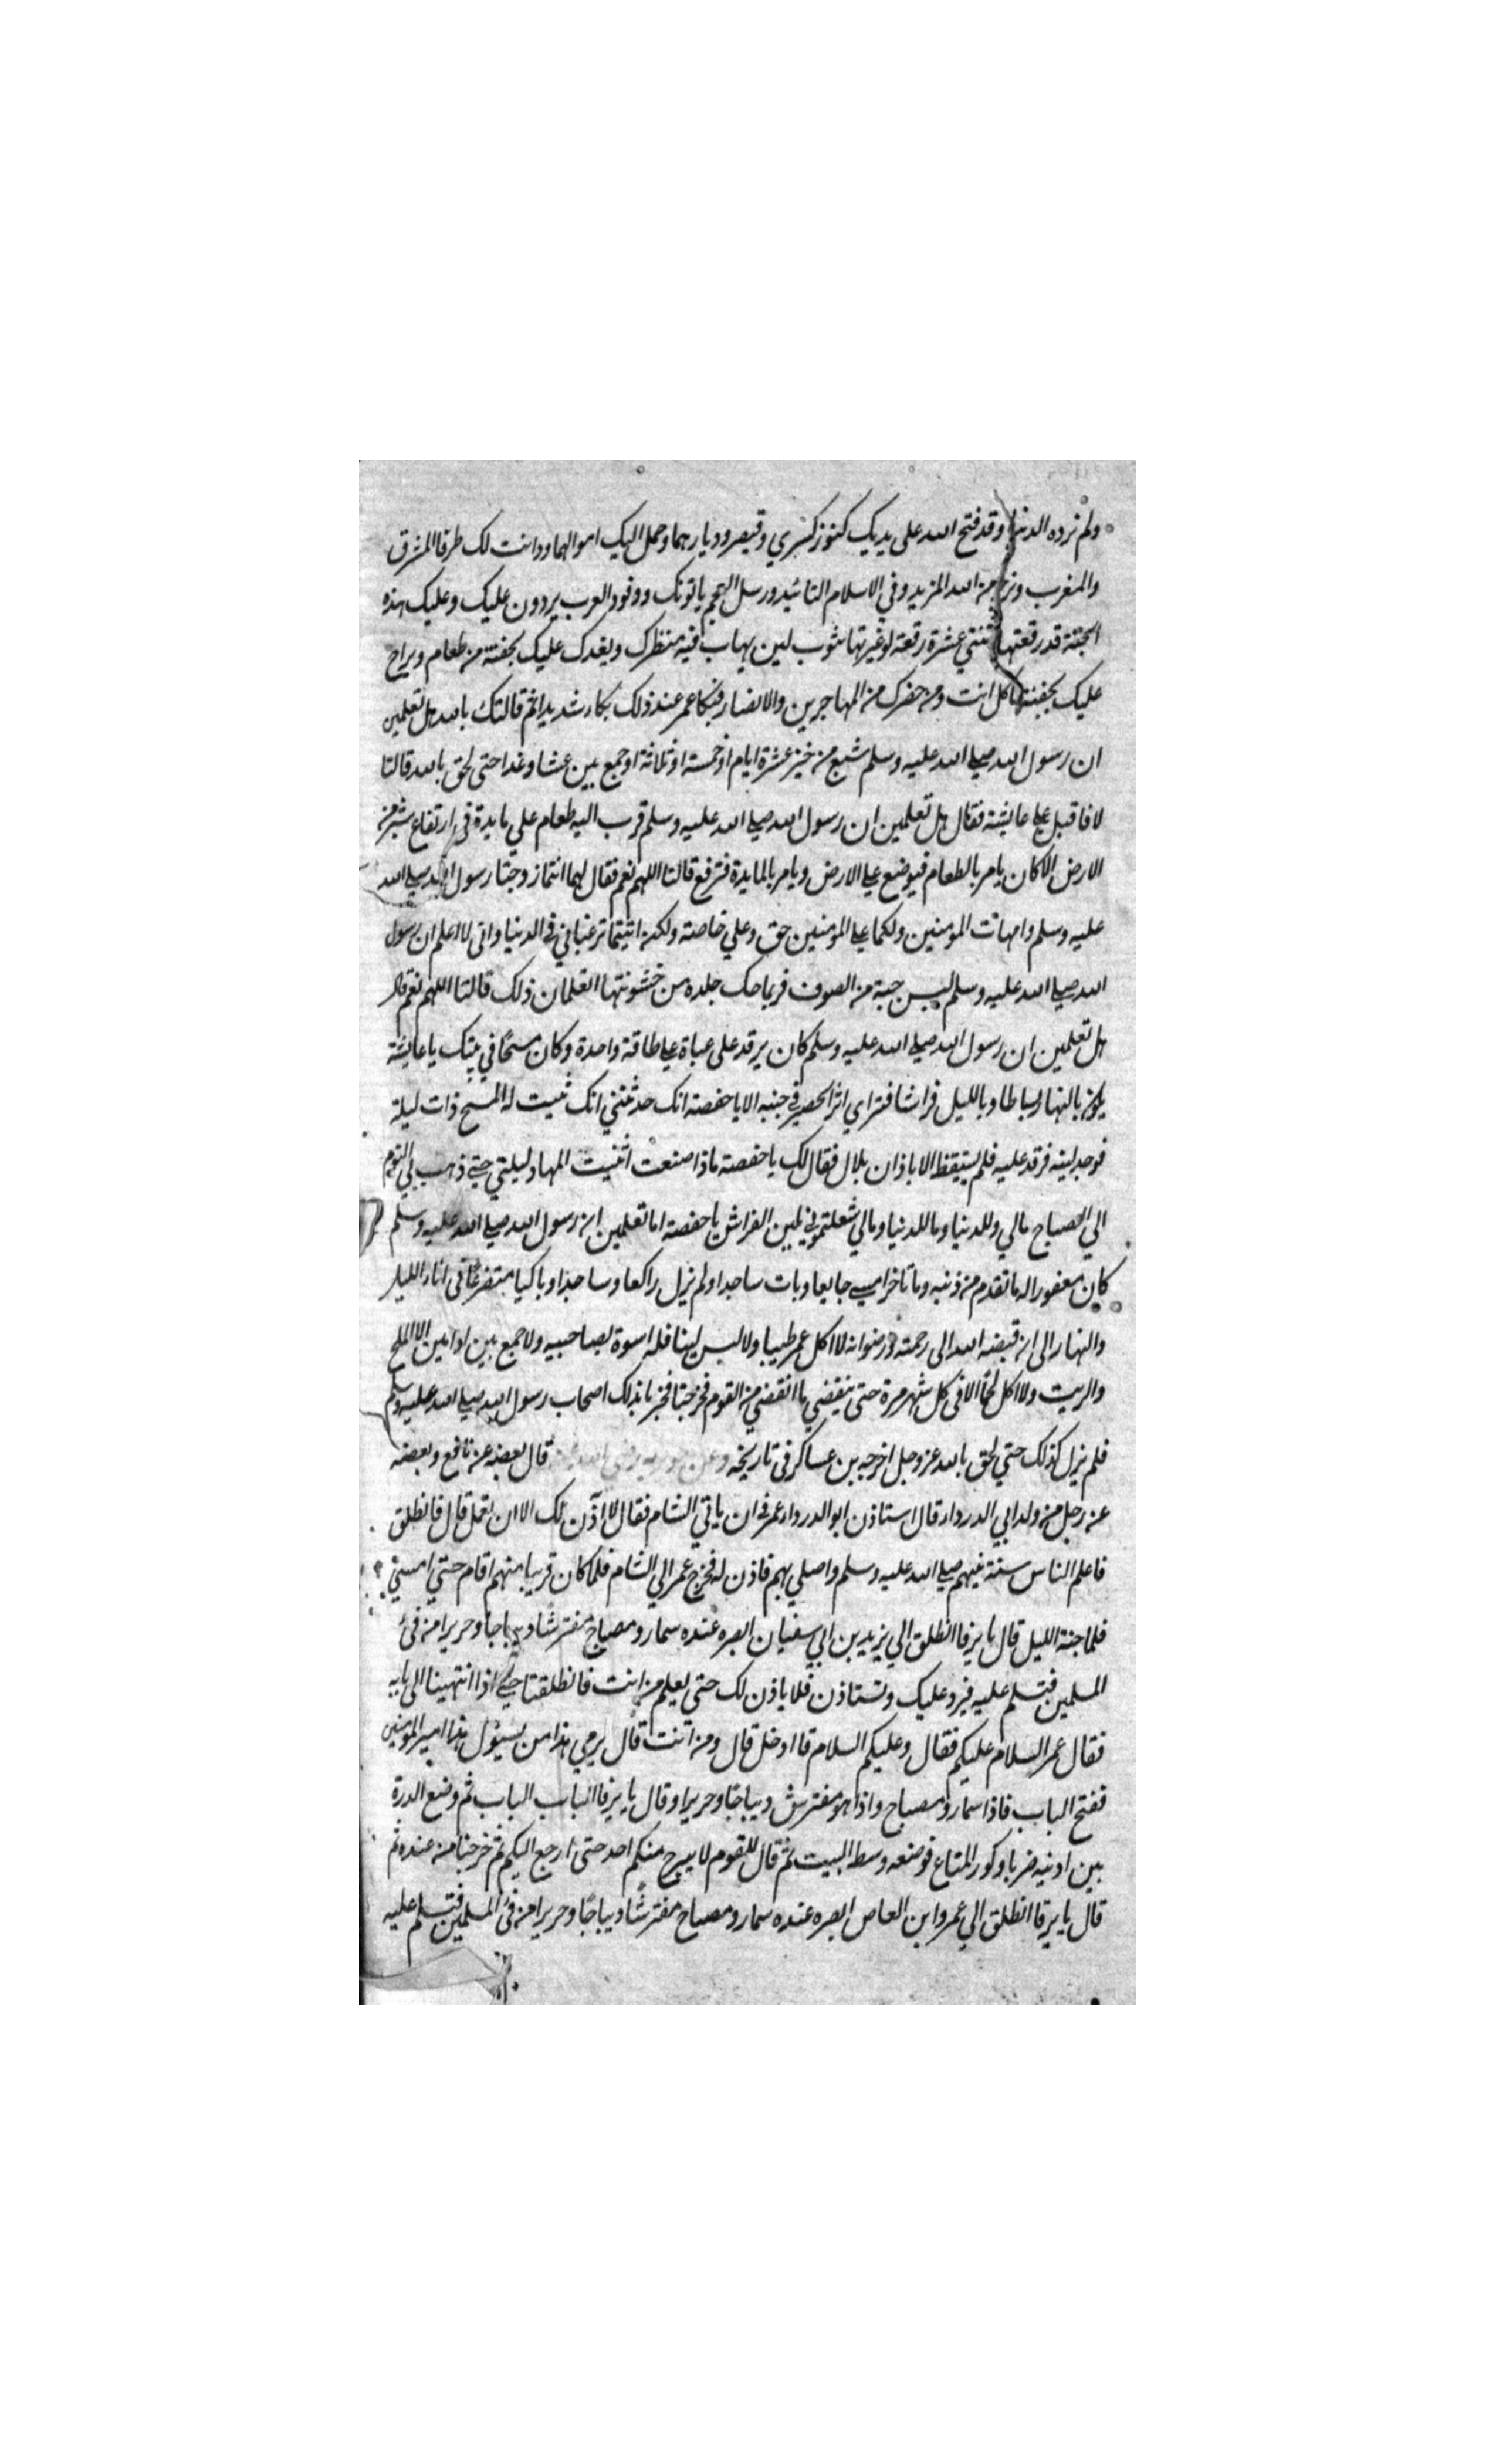 ولم نرده الدنيا وقد فتح الله على يديك كنوز كسري وقيصر وديارهما وحمل اليك اموالهما ودانت لك طرفا المشرق
والمغرب ونرجو من الله المزيد وفي الاسلام التائيد ورسل العجم ياتونك ووفود العرب يردون عليك وعليك هذه
الجبة قد رقعتها اثنتي عشرة رقعة لو غيرتها بثوب لين يهاب فيه منظرك ويغدك عليك بجفنة من طعام ويراح
عليك بجفنة تاكل انت ومن حضرك من المهاجرين والانصار فبكا عمر عند ذلك بكاء شديدا ثم قالتك بالله هل تعلمين
ان رسول الله صلي الله عليه وسلم شبع من خبز عشرة ايام او خمسة او ثلاثة او جمع بين عشا وغدا حتى لحق بالله قالتا
لا فاقبل علي عايشة فقال هل تعلمين ان رسول الله صلي الله عليه وسلم قرب اليه طعام علي مايدة في ارتفاع شبر من
الارض الا كان يامر بالطعام فيوضع علي الارض ويامر بالمايدة فترفع قالتا اللهم نعم فقال لهما انتما زوجتا رسول الله صلي الله
عليه وسلم وامهات المومنين ولكما علي المومنين حق وعلي خاصة ولكن اتيتما ترغباني في الدنيا واني لا اعلم ان رسول
الله صلي الله عليه وسلم لبس جبة من الصوف فربما حك جلده من خشونتها اتعلمان ذلك قالتا اللهم نعم قال
هل تعلمين ان رسول الله صلي الله عليه وسلم كان يرقد على عباة علي طاقة واحدة وكان مسحًا في بيتك يا عايشة
يكون بالنهار بساطا وبالليل فراشا فتراي اثر الحصير في جنبه الا يا حفصة انك حدثتني انك ثنيت له المسح ذات ليلة
فوجد لينه فرقد عليه فلم يستيقظ الا باذان بلال فقال لك يا حفصة ماذا صنعت اثنيت المهاد ليلتي حتي ذهب بي النوم
الي الصباح مالي وللدنيا وما للدنيا ومالي شغلتموني بلين الفراش يا حفصة اما تعلمين ان رسول الله صلي الله عليه وسلم
كان مغفورا له ما تقدم من ذنبه وما تاخر امسي جايعا وبات ساجدا ولم يزل راكعا وساجدا وباكيا متضرعًا في اناء الليل
والنهار الى ان قبضه الله الى رحمته ورضوانه لا اكل عمر طيبا ولا لبس لينا فله اسوة بصاحبيه ولا جمع بين ادامين الا الملح
والزيت ولا اكل لحمًا الا في كل شهر مرة حتى ينقضي ما انقضي من القوم فخرجتا فخبرتا بذلك اصحاب رسول الله صلي الله عليه وسلم
فلم يزل كذلك حتي لحق بالله عز وجل اخرجه بن عساكر في تاريخه وعن جويرية رضي الله عنه قال بعضه عن نافع وبعضه
عن رجل من ولد ابي الدرداء قال استاذن ابو الدرداء عمر في ان ياتي الشام فقال لا آذن لك الا ان تعمل قال فانطلق
فاعلم الناس سنة نبيهم صلي الله عليه وسلم واصلي بهم فاذن له فخرج عمر الي الشام فلما كان قريبا منهم اقام حتي امسي
فلما جنة الليل قال يا يرفا انطلق الي يزيد بن ابي سفيان ابصره عنده سمار ومصباح مفترشًا ديباجا وحريرا من فئ
المسلمين فتسلم عليه فيرد عليك وتستاذن فلا ياذن لك حتى يعلم من انت فانطلقنا حتي اذا انتهينا الى بابه
فقال عمر السلام عليكم فقال وعليكم السلام قا ادخل قال ومن انت قال يرمي هذا من يسئول هذا امير المومنين
ففتح الباب فاذا سمار ومصباح واذا هو مفترش ديباجًا وحريرا وقال يا يرفا الباب الباب ثم وضع الدرة
بين اذنيه ضربا وكور المتاع فوضعه وسط البيت ثم قال للقوم لا يبرح منكم احد حتى ارجع اليكم ثم خرجنا من عنده ثم
قال يا يرفا انطلق الي عمرو ابن العاص ابصره عنده سمار ومصباح مفترشًا ديباجًا وحريرا من فئ المسلمين فتسلم عليه